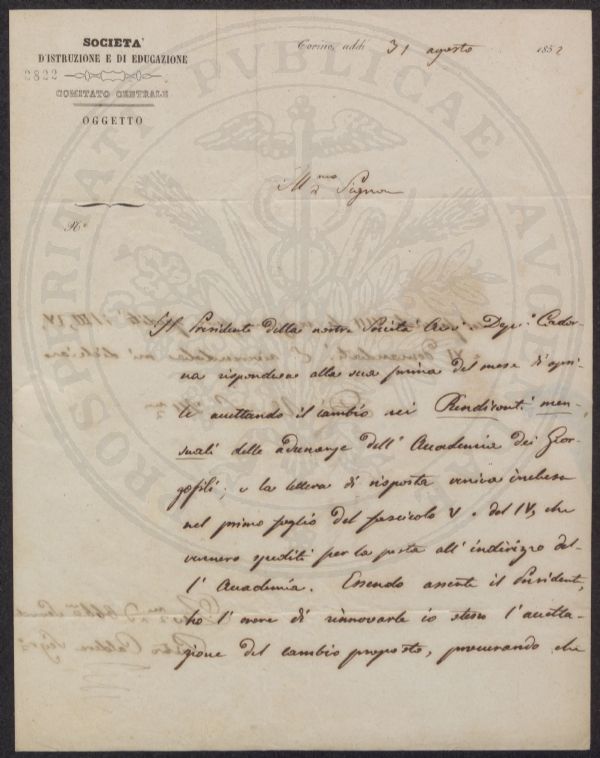 SOCIETA'
D'ISTRUZIONE E DI EDUCAZIONE
2822
COMITATO CENTRALE
OGGETTO
Torino, addì 31 agosto 1852
Ill.mo Signore
N.°
Il Presidente della nostra Società Cav. Dep. Cador-
na rispondeva alla sua prima del mese di apri-
le accettando il cambio nei Rendiconti men-
suali delle adunanze dell' Accademia dei Geor-
gofili; e la lettera di risposta veniva inclusa
nel primo foglio del fascicolo V. del IV, che
vennero spediti per la posta all' indirizzo del-
l' Accademia. Essendo assente il Presidente,
ho l'onore di rinnovarle io stesso l'accetta-
zione del cambio proposto, procurando che
PROSPERITATI PUBLICAE AUGENDAE